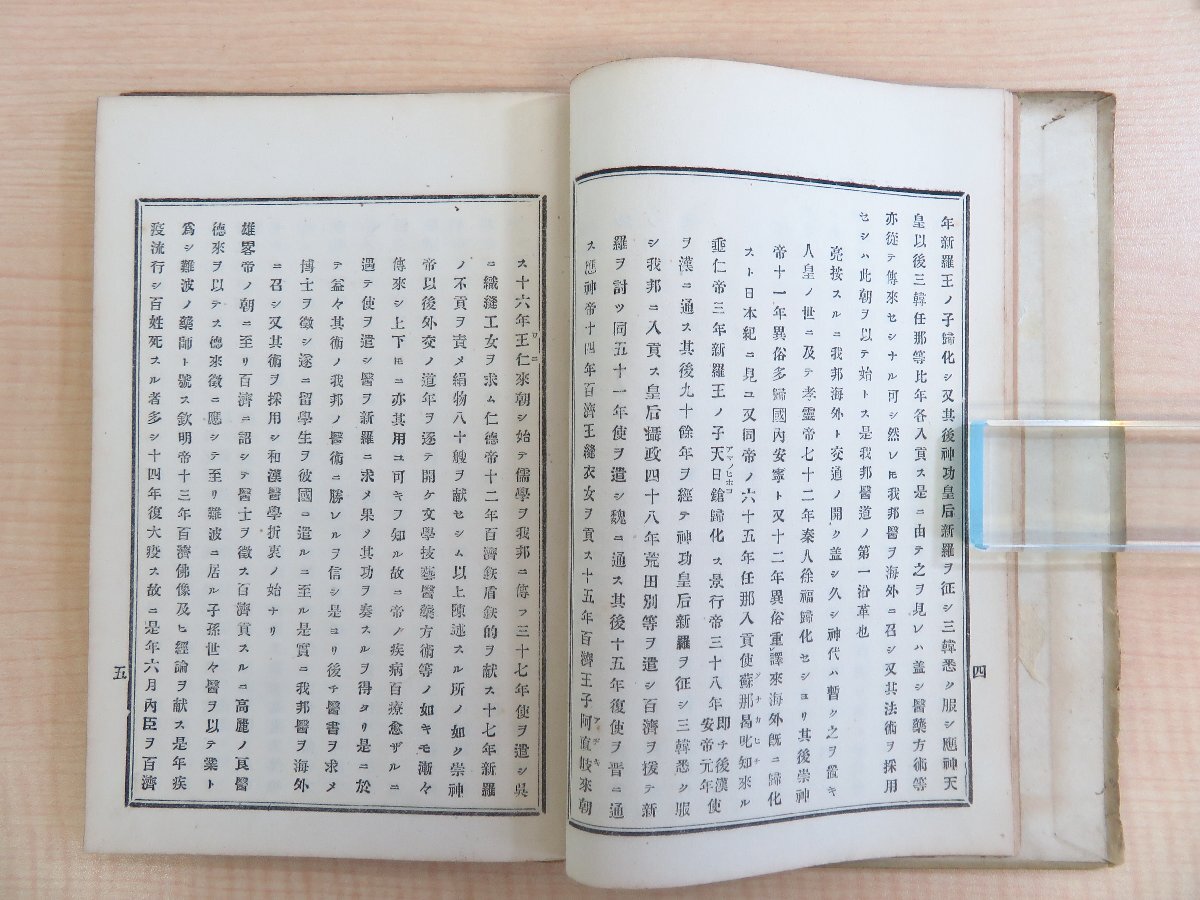 年新羅王ノ子歸化シ又其後神功皇后新羅ヲ征シ三韓悉ク服シ應神天
皇以後三韓任那等比年各入貢ス是ニ由テ之ヲ見レハ盖シ醫藥方術等
亦從テ傳來セシナル可シ然レ𪜈我邦醫ヲ海外ニ召シ又其法術ヲ採用
セシハ此朝ヲ以テ始トス是我邦醫道ノ第一沿革也
亮按スルニ我邦海外ト交通ノ開ク盖シ久シ神代ハ暫ク之ヲ置キ
人皇ノ世ニ及テ孝靈帝七十二年秦人徐福歸化セシヨリ其後崇神
帝十一年異俗多歸國內安寧ト又十二年異俗重譯來海外既ニ歸化
スト日本紀ニ見ユ又同帝ノ六十五年任那入貢使蘇那曷叱知來ル
ソナカヒチ
垂仁帝三年新羅王ノ子天日鎗歸化ス景行帝三十八年卽チ後漢安帝元年使
アマノヒホコ
ヲ漢ニ通ス其後九十餘年ヲ經テ神功皇后新羅ヲ征シ三韓悉ク服
シ我邦ニ入貢ス皇后攝政四十八年荒田別等ヲ遣シ百濟ヲ援テ新
羅ヲ討ツ同五十一年使ヲ遣シ魏ニ通ス其後十五年復使ヲ晋ニ通
ス應神帝十四年百濟王縫衣女ヲ貢ス十五年百濟王子阿直岐來朝
アヂキ
四
ス十六年王仁來朝シ始テ儒學ヲ我邦ニ傳フ三十七年使ヲ遣シ吳
ワニ
ニ織縫工女ヲ求ム仁德帝十二年百濟鉄盾鉄的ヲ献ス十七年新羅
ノ不貢ヲ責メ絹物八十艘ヲ献セシム以上陳述スル所ノ如ク崇神
帝以後外交ノ道年ヲ逐テ開ケ文學技藝醫藥方術等ノ如キモ漸々
傳來シ上下𪜈ニ亦其用ユ可キヲ知ル故ニ帝ノ疾病百療愈ザルニ
遇テ使ヲ遣シ醫ヲ新羅ニ求メ果タ其功ヲ奏スルヲ得タリ是ニ於
テ益々其術ノ我邦ノ醫術ニ勝レルヲ信シ是ヨリ後チ醫書ヲ求メ
博士ヲ徵シ遂ニ留學生ヲ彼國ニ遣ルニ至ル是實ニ我邦醫ヲ海外
ニ召シ又其術ヲ採用シ和漢醫學折衷ノ始ナリ
雄畧帝ノ朝ニ至リ百濟ニ詔シテ醫士ヲ徵ス百濟貢スルニ高麗ノ良醫
德來ヲ以テス德來徵ニ應シテ至リ難波ニ居ル子孫世々醫ヲ以テ業ト
爲シ難波ノ藥師ト號ス欽明帝十三年百濟佛像及ヒ經論ヲ献ス是年疾
疫流行シ百姓死スル者多シ十四年復大疫ス故ニ是年六月內臣ヲ百濟
五